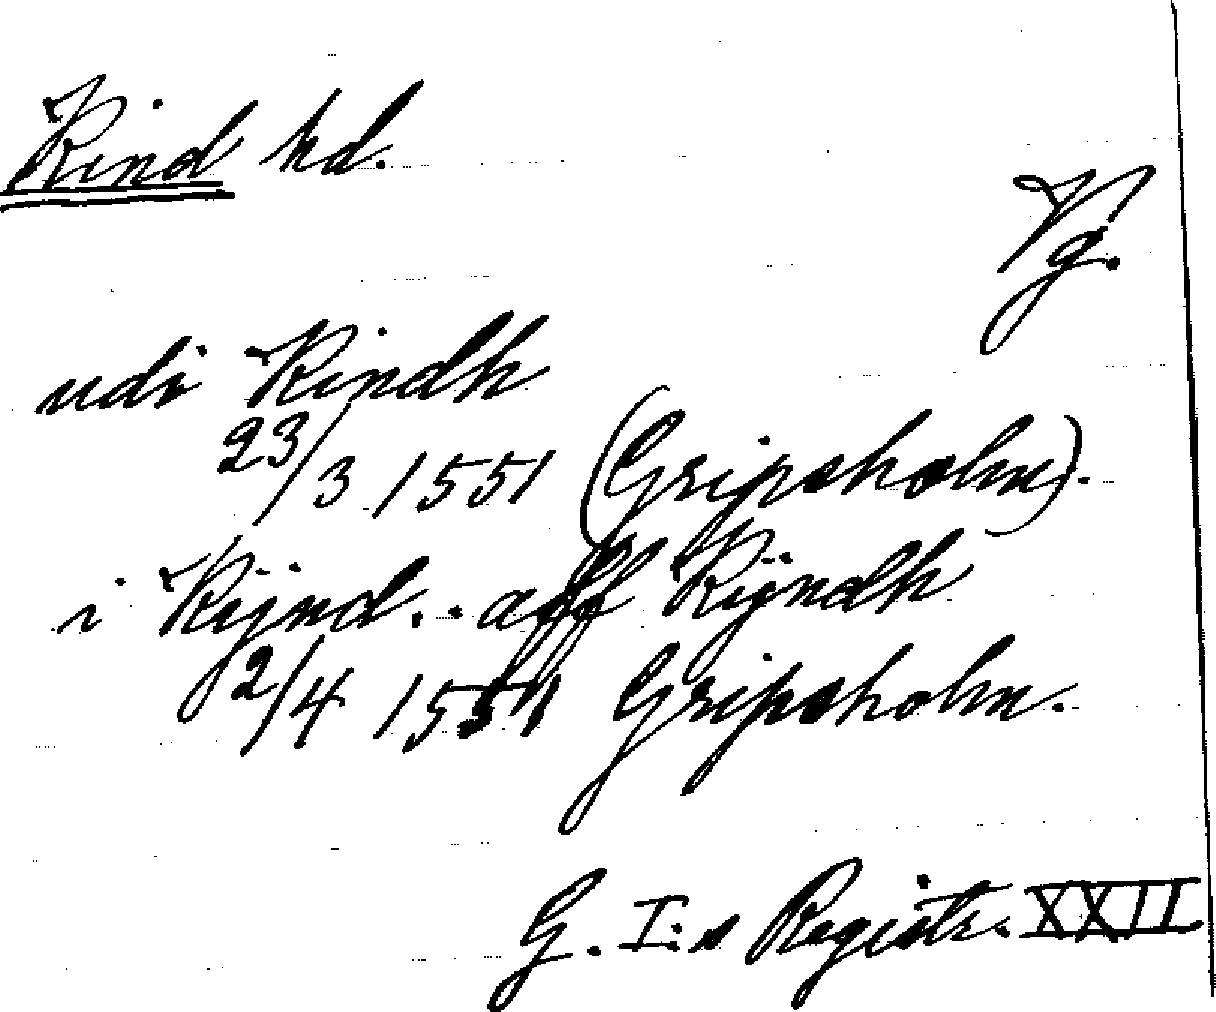 Kind hd.
Vg.
udi Kindh
23/3 1551 (Gripsholm).
i Kijnd. - aff Kijndh
2/4 1551 Gripsholm.
G. I:s Registr. XXII